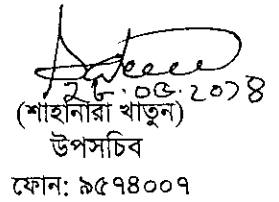 ২৮.০৫.২০১৪
(শাহানারা খাতুন)
উপসচিব
ফোন: ৯৫৭৪০০৭